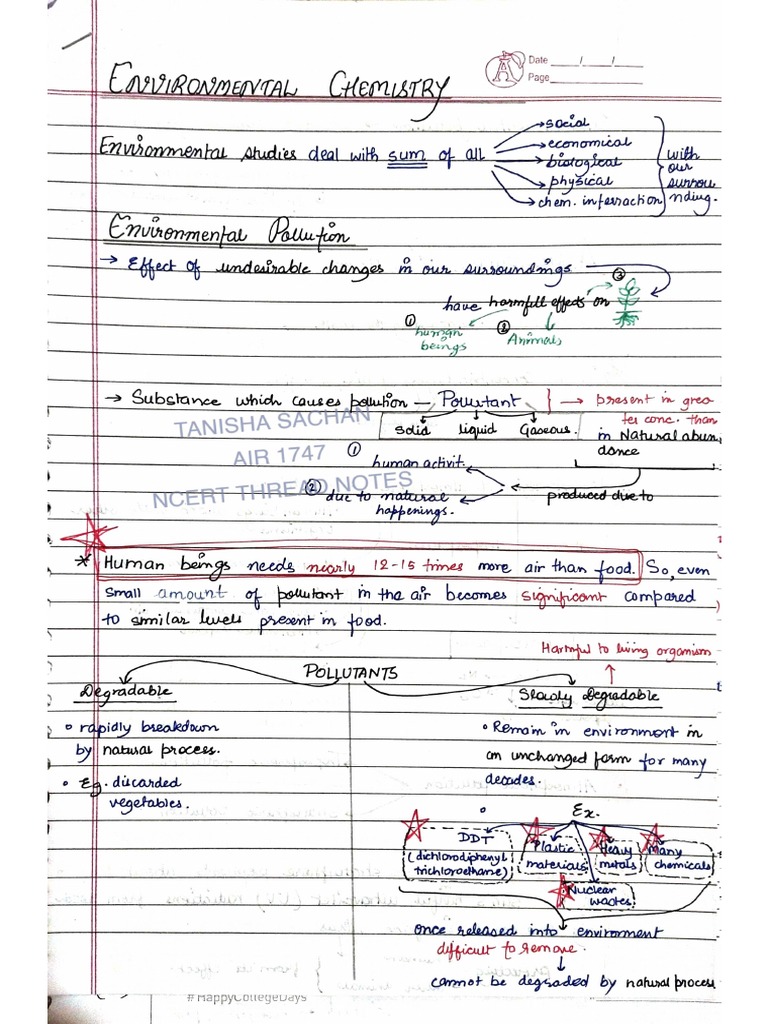 Date ___/___/___
Page
ENVIRONMENTAL CHEMISTRY
Environmental studies deal with sum of all
social
economical
biological
physical
chem. interraction
with
our
surrou
nding.
Environmental Pollution
→ Effect of undesirable changes in our surroundings
have harmfull effects on ③
① human
beings
② Animals
→ Substance which causes pollution — Pollutant → present in grea
ter conc. than
in Natural abun
dance
solid liquid Gaseous.
TANISHA SACHAN
AIR 1747
NCERT THREAD NOTES
① human activit.
② due to natural
happenings.
produced due to
* Human beings needs nearly 12-15 times more air than food. So, even
small amount of pollutant in the air becomes significant compared
to similar levels present in food.
Harmful to living organism
POLLUTANTS
Degradable
• rapidly breakdown
by natural process.
• Eg. discarded
vegetables.
Slowly Degradable
• Remain in environment in
an unchanged form for many
decades.
• Ex.
DDT
(dichlorodiphenyl
trichloroethane)
Plastic
materials
Heavy
metals
Many
chemicals
Nuclear
wastes
once released into environment
difficult to remove.
cannot be degraded by natural process
#HappyCollegeDays